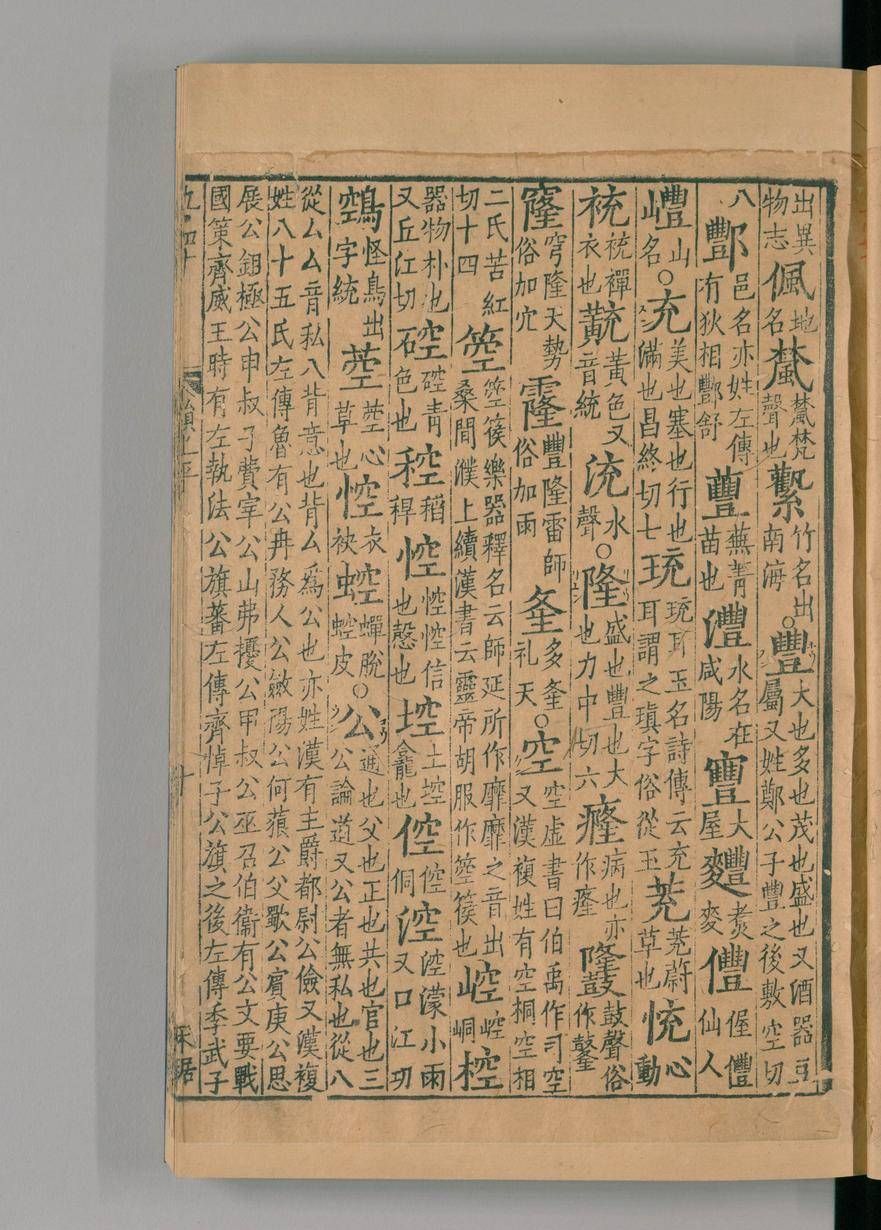 出異物志偑地名檒檒梵聲也蘩竹名出南海○豐大也多也茂也盛也又酒器豆屬又姓鄭公子豐之後敷空切
八酆邑名亦姓左傳有狄相酆舒蘴蕪菁苗也灃水名在咸陽寷大屋麷煑麥僼偓僼仙人
㠦山名○充美也塞也行也滿也昌終切七珫珫耳玉名詩傳云充耳謂之瑱字俗從玉茺茺蔚草也㤝心動
𧙥𧙥襌衣也黈黃色又音統㳘水聲○隆盛也豐也大也力中切六癃病也亦作𤸇䶱鼓聲俗作鼕
窿穹隆天勢俗加穴霳豐隆雷師俗加雨𡗉多𡗉○空空虛書曰伯禹作司空又漢複姓有空桐空相
二氏苦紅切十四箜箜篌樂器釋名云師延所作靡靡之音出桑間濮上續漢書云靈帝胡服作箜篌也崆崆峒椌
器物朴也又丘江切硿硿青色也稝稻稈悾悾悾信也慤也埪土埪龕也倥倥侗涳涳濛小雨又口江切
鵼怪鳥出字統䓚䓚心草也𧚬衣袂𧌆蟬脫𧌆皮○公通也父也正也共也官也三公論道又公者無私也從八
從厶厶音私八背意也背厶爲公也亦姓漢有主爵都尉公儉又漢複
姓八十五氏左傳魯有公冉務人公斂陽公何藐公父歜公賓庚公思
展公鉏極公申叔子費宰公山弗擾公甲叔公巫召伯衞有公文要戰
國策齊威王時有左執法公旗蕃左傳齊悼子公旗之後左傳季武子